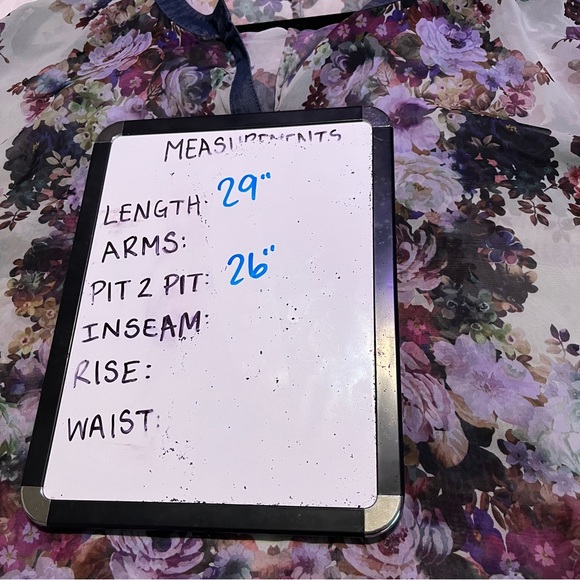 MEASUREMENTS
LENGTH: 29"
ARMS:
PIT 2 PIT: 26"
INSEAM:
RISE:
WAIST: